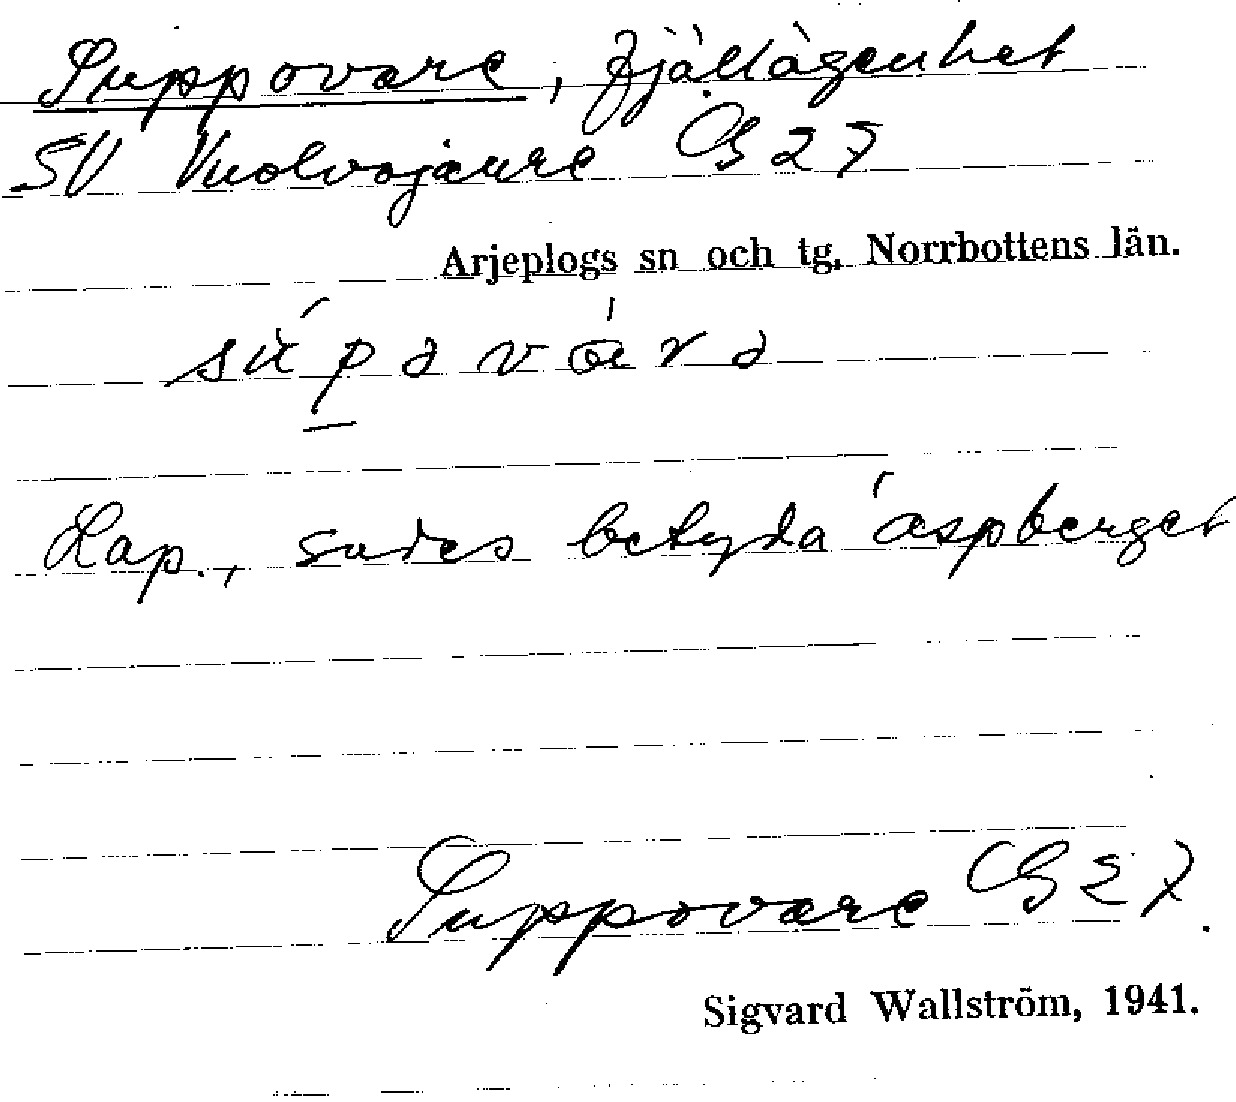 Suppovare, fjällägenhet
SV Vuolvojaure G 27
Arjeplogs sn och tg. Norrbottens län.
Lap., sades betyda aspberget
Suppovare G 27.
Sigvard Wallström, 1941.